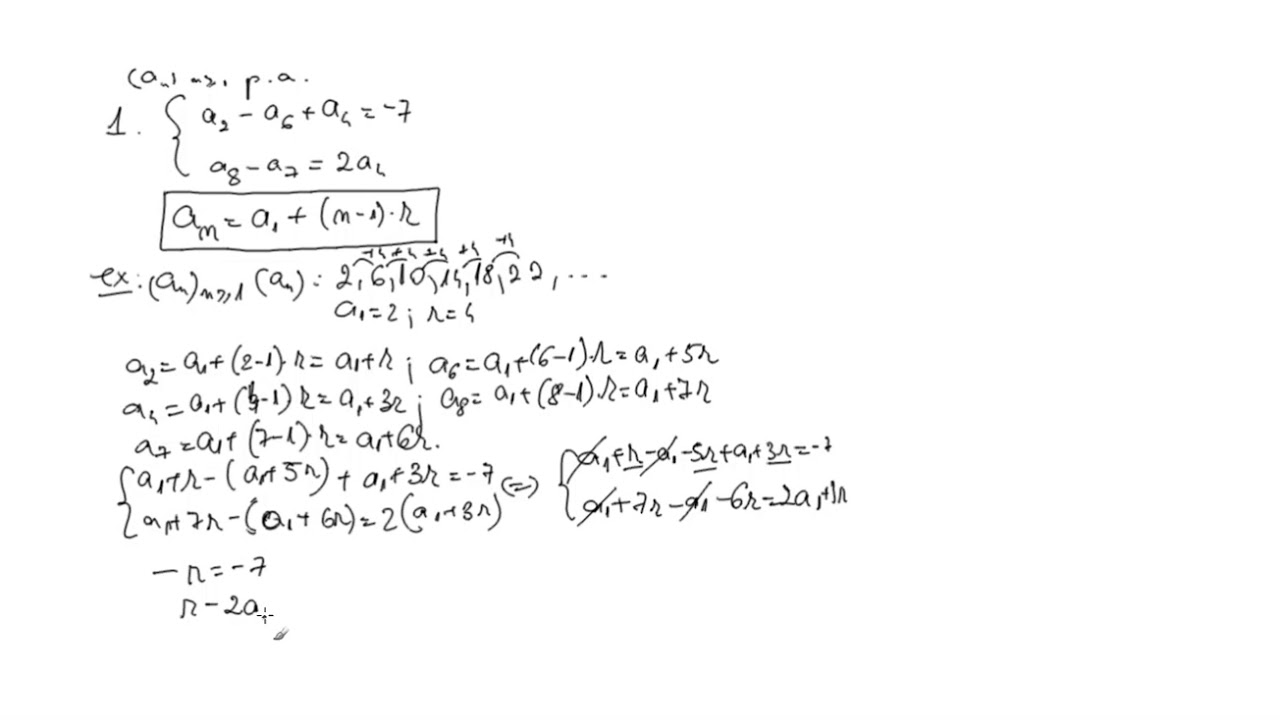 (aₙ) n≥1 p.a.
1. { a₂ - a₆ + a₄ = -7
a₈ - a₇ = 2a₄
aₙ = a₁ + (n-1)·r
+4 +4 +4 +4 +4
ex: (aₙ)ₙ≥₁ (aₙ): 2, 6, 10, 14, 18, 22, ...
a₁=2; r=4
a₂ = a₁+(2-1)·r = a₁+r; a₆ = a₁+(6-1)·r = a₁+5r
a₄ = a₁+(4-1)r = a₁+3r; a₈ = a₁+(8-1)·r = a₁+7r
a₇ = a₁+(7-1)·r = a₁+6r.
{ a₁+r-(a₁+5r)+a₁+3r=-7 (=) { a₁+r-a₁-5r+a₁+3r=-7
a₁+7r-(a₁+6r)=2(a₁+3r) a₁+7r-a₁-6r=2a₁+
-r=-7
r-2a₁